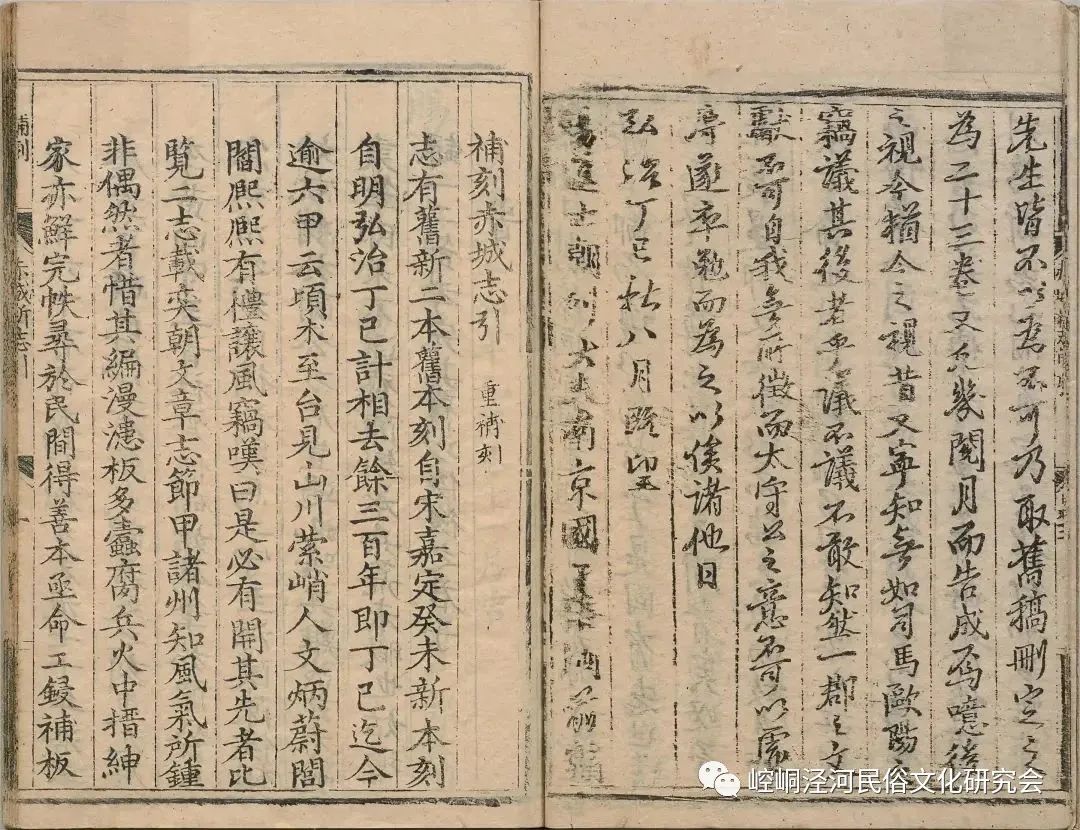 先生皆不以為不可乃取舊稿刪定之
為二十三卷又凡幾閱月而告成焉噫後
之視今猶今之視昔又寧知無如司馬歐陽
竊議其後者乎議不議不敢知然一郡之文
獻不可自我無所徵而太守公之意不可以虛
辱遂卒勉而為之以俟諸他日
弘治丁巳秋八月既望
士朝列大夫南京國子
補刻赤城志引
重補刻
志有舊新二本舊本刻自宋嘉定癸未新本刻
自明弘治丁巳計相去餘三百年即丁巳迄今
逾六甲云頃朮至台見山川縈峭人文炳蔚閭
閻熈熈有禮讓風竊嘆曰是必有開其先者比
覽二志載奕朝文章志節甲諸州知風氣所鍾
非偶然者惜其編漫漶板多蠹腐兵火中搢紳
家亦鮮完帙尋於民間得善本亟命工鋟補板
補刻
赤城新志引
崆峒泾河民俗文化研究会